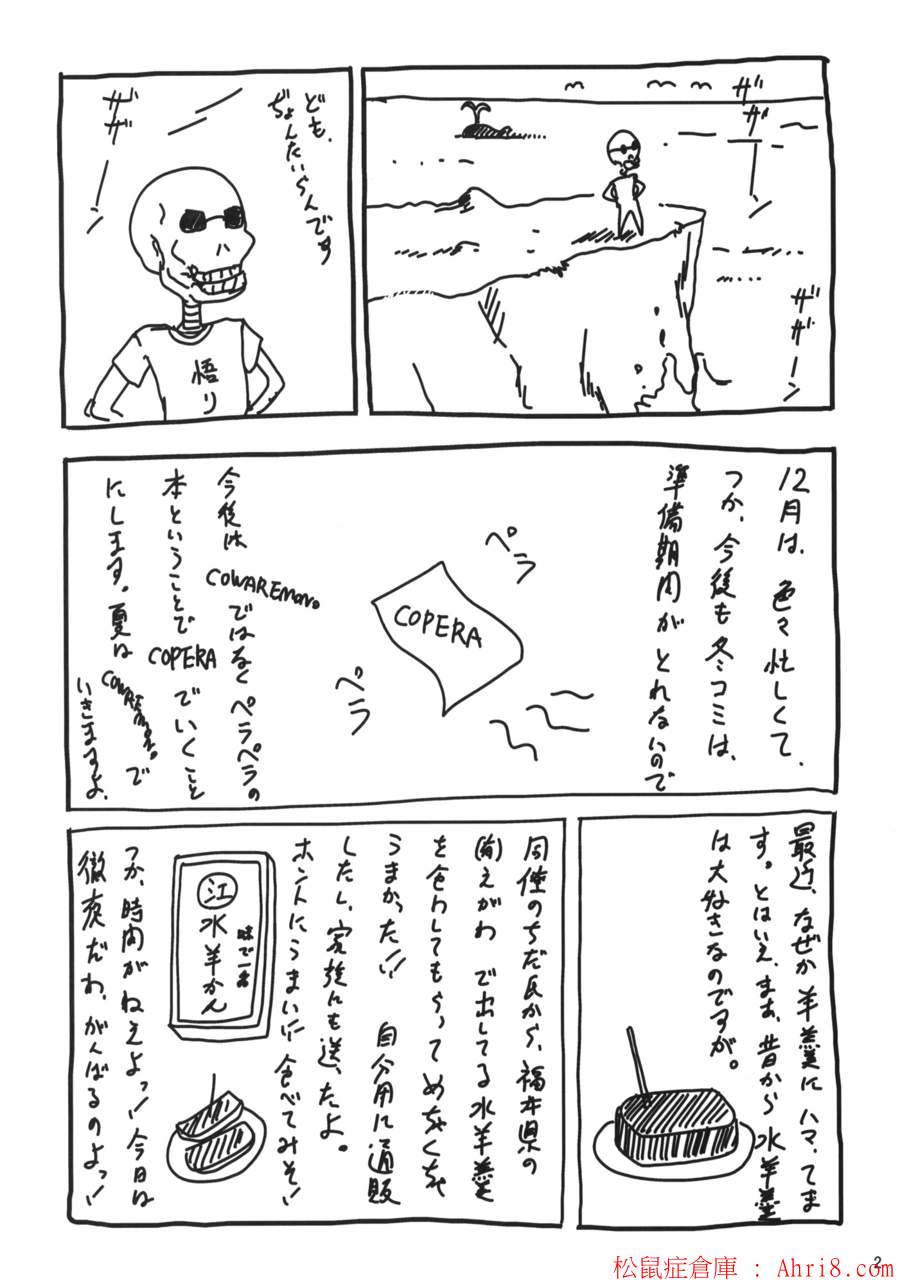 ザ
ザーン
ザザーン
ども、
ぢょんたいらんです
ザザーン
悟り
12月は、色々忙しくて、
つか、今後も冬コミは、
準備期間がとれないので
ペラ
COPERA
ペラ
今後は COWAREmono ではなくペラペラの
本ということで COPERA でいくこと
にします。夏は COWAREmono で
いきますよ。
最近、なぜか羊羹にハマってま
す。とはいえ、まあ、昔から水羊羹
は大好きなのですが。
同僚のちだ氏から、福井県の
(有)えがわ で出してる水羊羹
を食わしてもらってめちゃくちゃ
うまかった!! 自分用に通販
したし、家族にも送ったよ。
ホントにうまい!! 食べてみそ!
江
味で一名
水羊かん
つか、時間がねえよっ!! 今日は
徹夜だわ、がんばるのよっ!!
2
松鼠症倉庫 : Ahri8.com